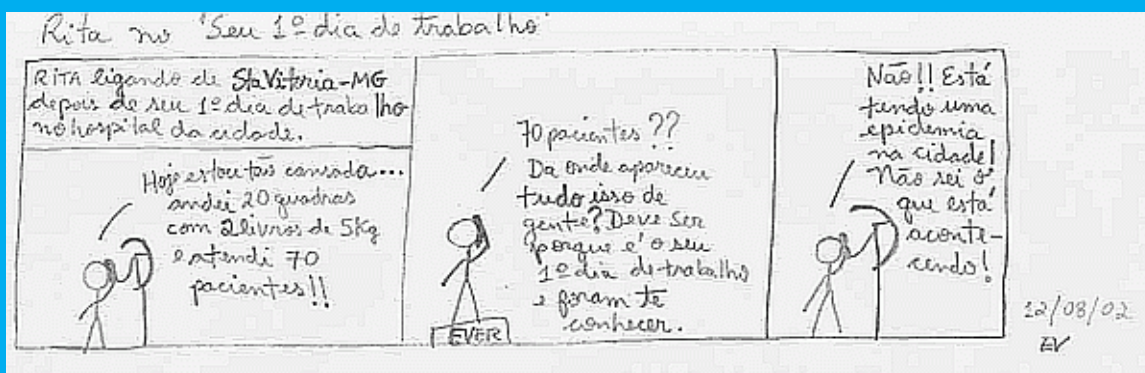 Rita no 'Seu 1º dia de trabalho'
RITA ligando de Sta Vitoria-MG
depois de seu 1º dia de trabalho
no hospital da cidade.
Hoje estou tão cansada...
andei 20 quadras
com 2 livros de 5Kg
e atendi 70
pacientes!!
70 pacientes??
Da onde apareceu
tudo isso de
gente? Deve ser
porque é o seu
1º dia de trabalho
e foram te
conhecer.
EVER
Não!! Está
tendo uma
epidemia
na cidade!
Não sei o
que está
aconte-
cendo!
12/08/02
EV